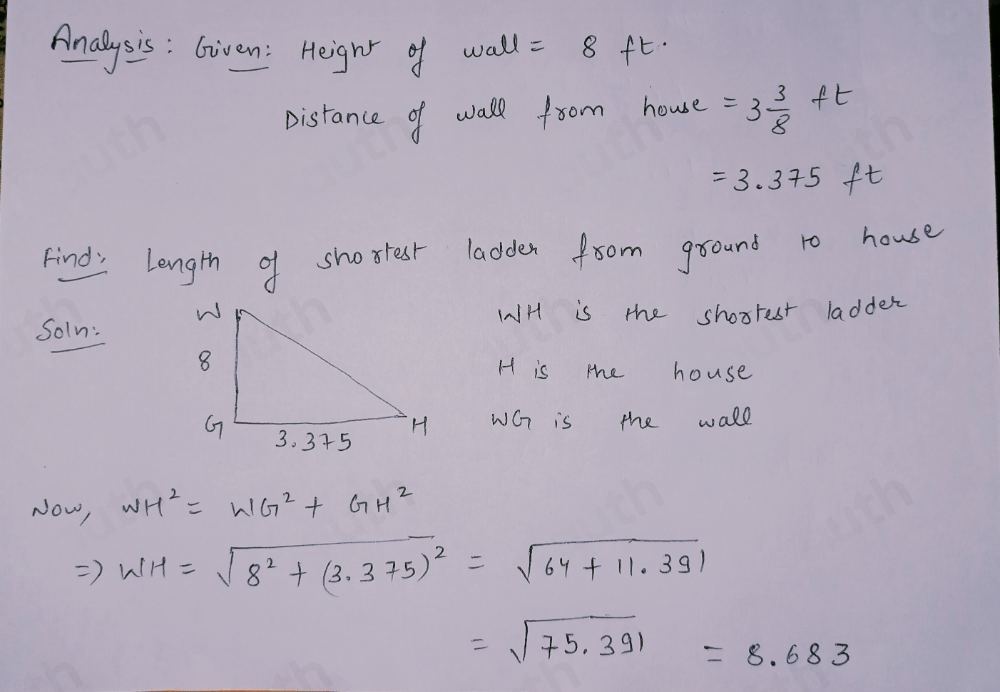 Analysis: Given: Height of wall = 8 ft.
Distance of wall from house = 3 3/8 ft
= 3.375 ft
Find: Length of shortest ladder from ground to house
Soln:
W
8
G
3.375
H
WH is the shortest ladder
H is the house
WG is the wall
Now, WH² = WG² + GH²
=) WH = √8² + (3.375)² = √64 + 11.391
= √75.391 = 8.683